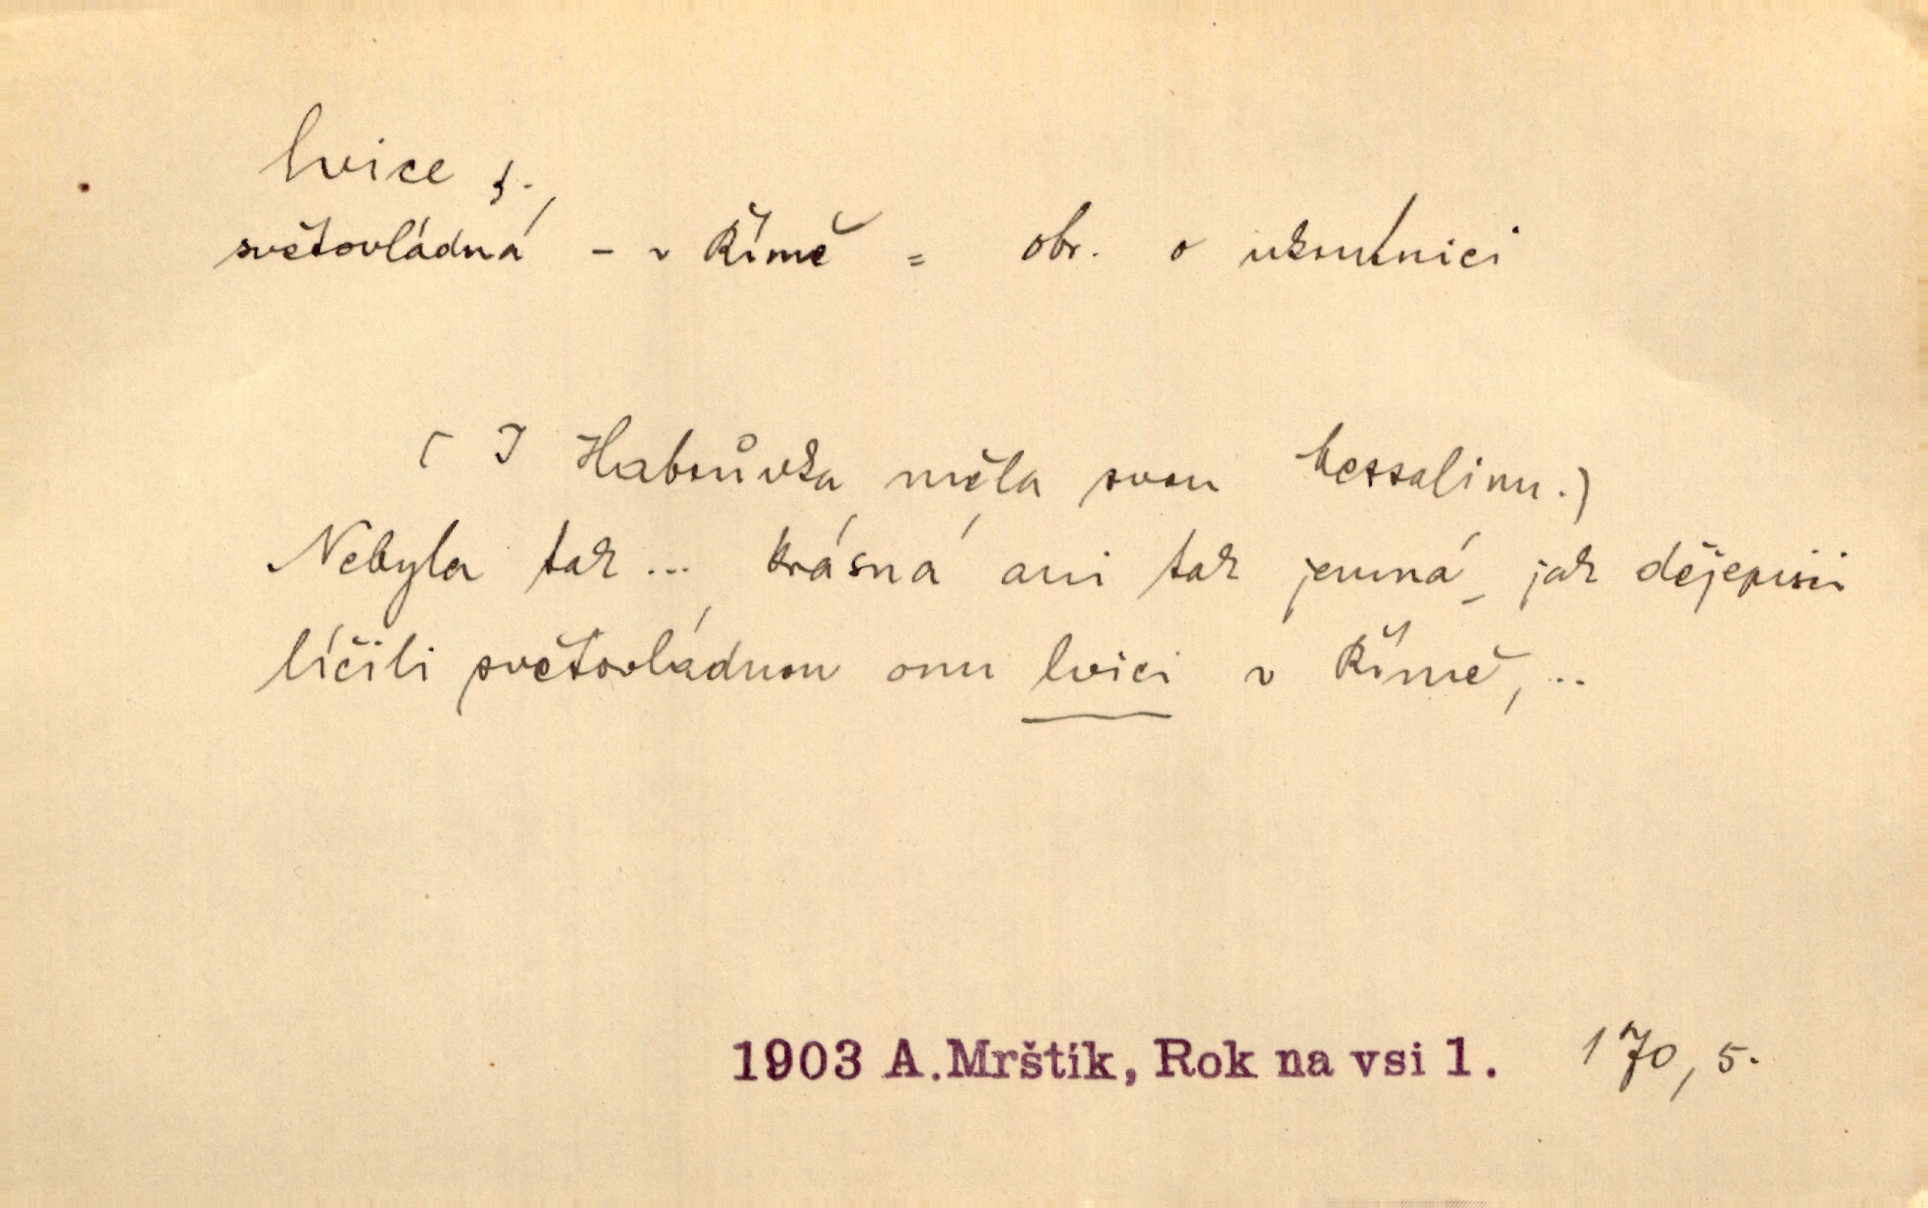 lvice f.
světovládná – v Římě = obr. o ukrutnici
( I Habrůvka měla svou Messalinu.)
Nebyla tak ... krásná ani tak jemná, jak dějepisci
líčili světovládnou onu lvici v Římě, ..
1903 A.Mrštík, Rok na vsi 1. 170, 5.